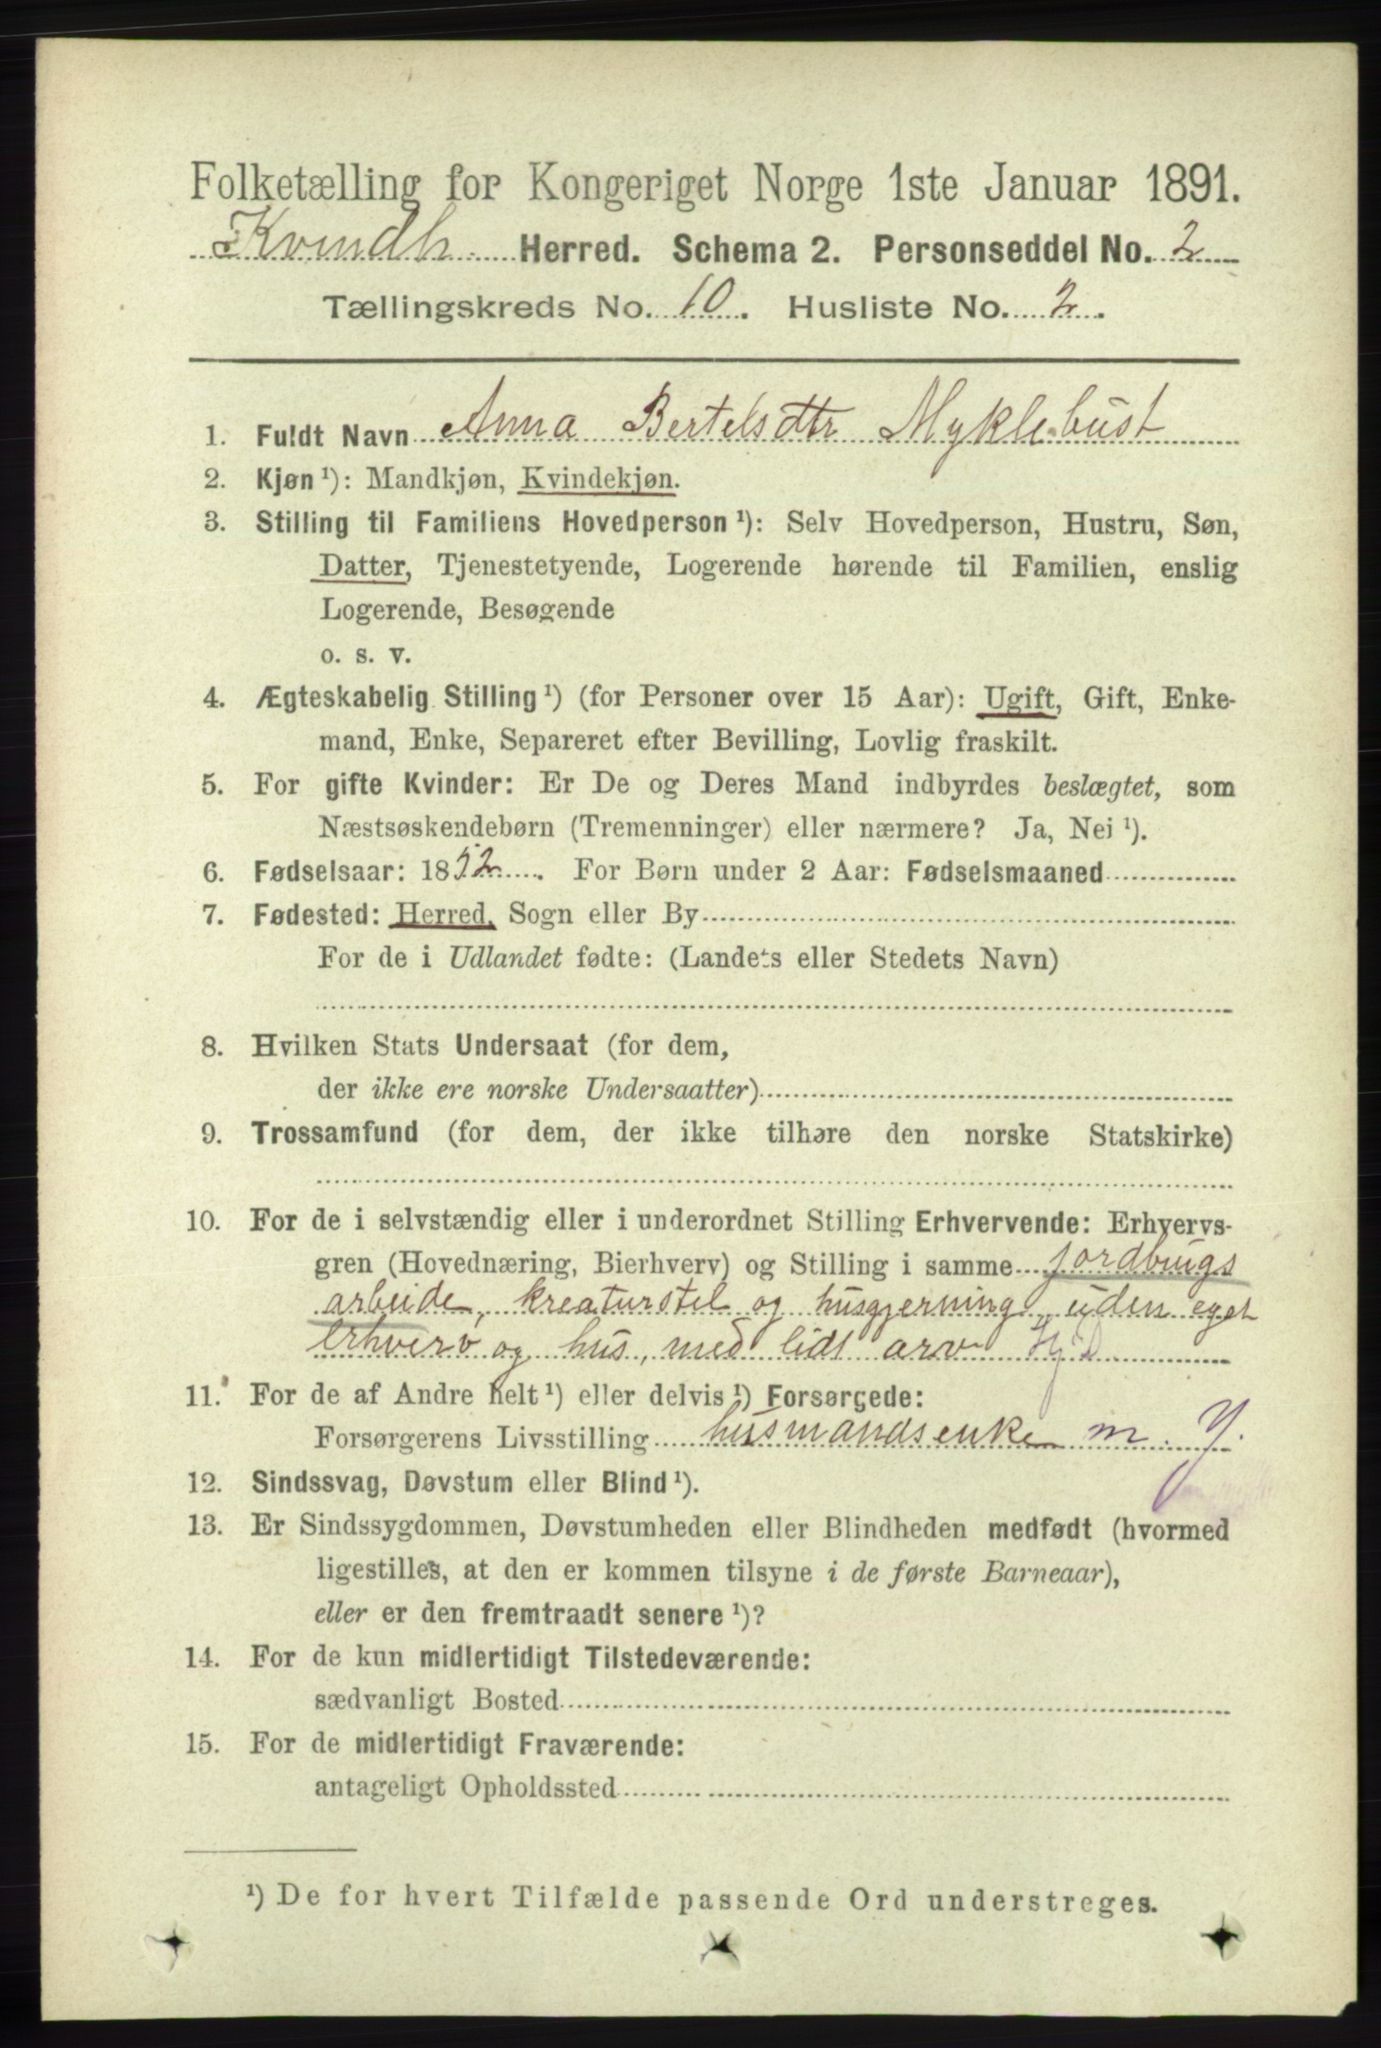 Folketælling for Kongeriget Norge 1ste Januar 1891.
Kvindh. Herred. Schema 2. Personseddel No. 2
Tællingskreds No. 10. Husliste No. 2.
1. Fuldt Navn Anna Bertelsdtr Myklebust
2. Kjøn ¹): Mandkjøn, Kvindekjøn.
3. Stilling til Familiens Hovedperson ¹): Selv Hovedperson, Hustru, Søn,
Datter, Tjenestetyende, Logerende hørende til Familien, enslig
Logerende, Besøgende
o. s. v.
4. Ægteskabelig Stilling ¹) (for Personer over 15 Aar): Ugift, Gift, Enke-
mand, Enke, Separeret efter Bevilling, Lovlig fraskilt.
5. For gifte Kvinder: Er De og Deres Mand indbyrdes beslægtet, som
Næstsøskendebørn (Tremenninger) eller nærmere? Ja, Nei ¹).
6. Fødselsaar: 1852. For Børn under 2 Aar: Fødselsmaaned
7. Fødested: Herred, Sogn eller By
For de i Udlandet fødte: (Landets eller Stedets Navn)
8. Hvilken Stats Undersaat (for dem,
der ikke ere norske Undersaatter)
9. Trossamfund (for dem, der ikke tilhøre den norske Statskirke)
10. For de i selvstændig eller i underordnet Stilling Erhvervende: Erhvervs-
gren (Hovednæring, Bierhverv) og Stilling i samme jordbrugs
arbeide, kreaturstel og husgjerning, uden eget
erhverv og hus, med lidt arv
11. For de af Andre helt ¹) eller delvis ¹) Forsørgede:
Forsørgerens Livsstilling husmandsenke m. J.
12. Sindssvag, Døvstum eller Blind ¹).
13. Er Sindssygdommen, Døvstumheden eller Blindheden medfødt (hvormed
ligestilles, at den er kommen tilsyne i de første Barneaar),
eller er den fremtraadt senere ¹)?
14. For de kun midlertidigt Tilstedeværende:
sædvanligt Bosted
15. For de midlertidigt Fraværende:
antageligt Opholdssted
¹) De for hvert Tilfælde passende Ord understreges.